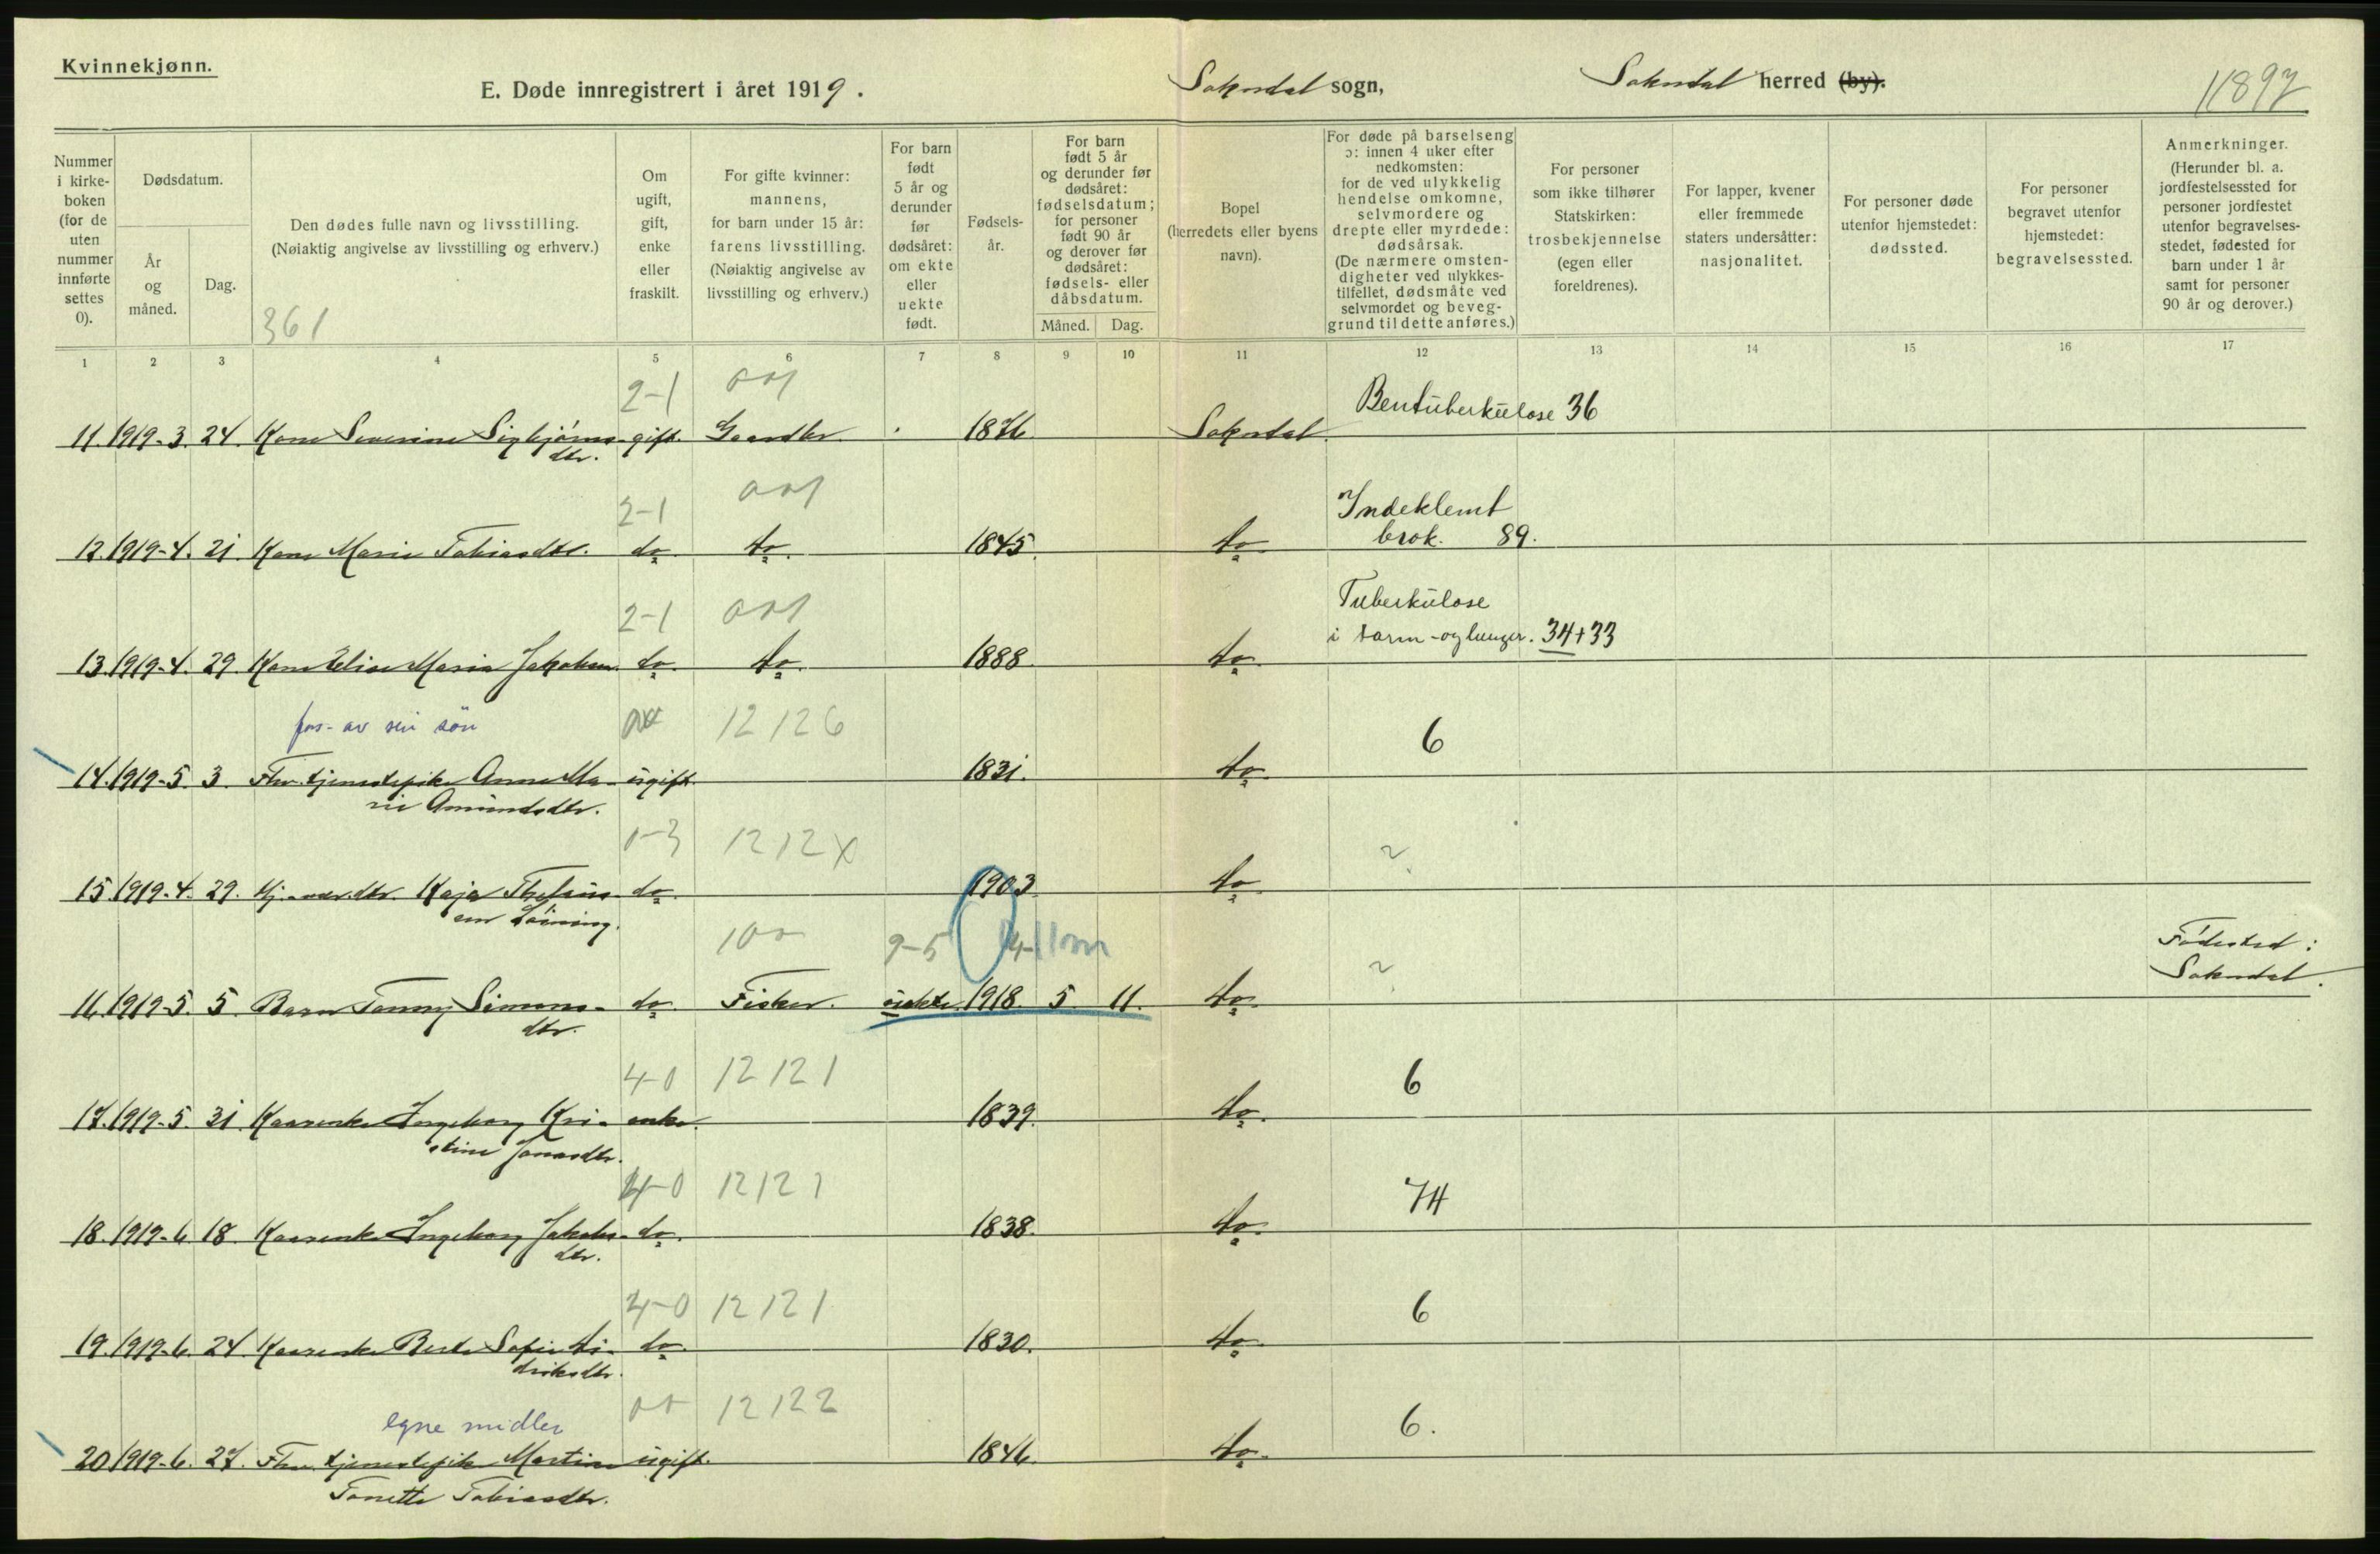 Kvinnekjønn.
E. Døde innregistrert i året 1919.
Sokndal sogn,
Sokndal herred (by).
11897
Nummer i kirke-boken (for de uten nummer innførte settes 0).
Dødsdatum.
År og måned.
Dag.
Den dødes fulle navn og livsstilling.
(Nøiaktig angivelse av livsstilling og erhverv.)
361
Om ugift, gift, enke eller fraskilt.
For gifte kvinner: mannens, for barn under 15 år: farens livsstilling. (Nøiaktig angivelse av livsstilling og erhverv.)
For barn født 5 år og derunder før dødsåret: om ekte eller uekte født.
Fødsels-år.
For barn født 5 år og derunder før dødsåret: fødselsdatum; for personer født 90 år og derover før dødsåret: fødsels- eller dåbsdatum.
Måned. Dag.
Bopel (herredets eller byens navn).
For døde på barselseng ɔ: innen 4 uker efter nedkomsten: for de ved ulykkelig hendelse omkomne, selvmordere og drepte eller myrdede: dødsårsak. (De nærmere omsten-digheter ved ulykkes-tilfellet, dødsmåte ved selvmordet og beveg-grund til dette anføres.)
For personer som ikke tilhører Statskirken: trosbekjennelse (egen eller foreldrenes).
For lapper, kvener eller fremmede staters undersåtter: nasjonalitet.
For personer døde utenfor hjemstedet: dødssted.
For personer begravet utenfor hjemstedet: begravelsessted.
Anmerkninger. (Herunder bl. a. jordfestelsessted for personer jordfestet utenfor begravelses-stedet, fødested for barn under 1 år samt for personer 90 år og derover.)
1 2 3 4 5 6 7 8 9 10 11 12 13 14 15 16 17
2-1
Bentuberkulose 36
11. 1919-3. 24. Kone Severine Sigbjørns- gift. Gaardbr. 1876. Sokndal.
dtr.
2-1
Indeklemt
brok. 89.
12. 1919-4. 21. Kone Marie Tobiasdtr. do. do. 1845. do.
2-1
Tuberkulose
i tarm- og lunger. 34+33
13. 1919-4. 29. Kone Elise Maria Jakobsen do. do. 1888. do.
fors. av sin sön
12 126
6
14. 1919-5. 3. Fhv. tjenestepike Anne Ma- ugift. 1831. do.
rie Amundsdtr.
1-3 12 12 X
?
15. 1919-4. 29. Kaja do. 1903. do.
9-5 4-11m
?
Födested:
Sokndal.
16. 1919-5. 5. Barn Fanny Simons- do. Fisker. uekte. 1918. 5. 11. do.
dtr.
4-0 12 12 1
6
17. 1919-5. 31. Kaarenke Ingeborg Kri- enke. 1839. do.
stine Jonasdtr.
4-0 12 12 1
74
18. 1919-6. 18. Kaarenke Ingeborg Jakobs- do. 1838. do.
dtr.
4-0 12 12 1
6
19. 1919-6. 24. Kaarenke Berte Sofie Di- do. 1830. do.
driksdtr.
egne midler
12 12 2
6.
20. 1919-6. 27. Fhv. tjenestepike Martine ugift. 1846. do.
Tonette Tobiasdtr.